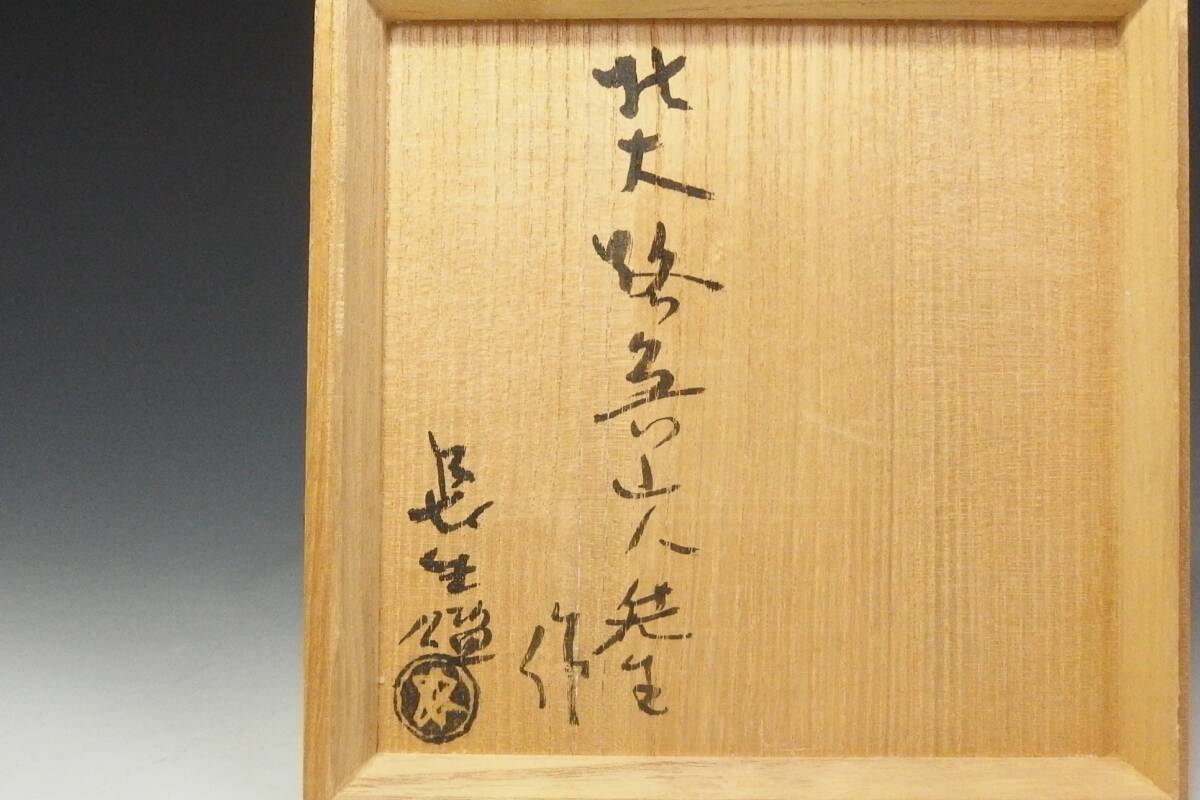 北大路魯山人先生
作
長生鑑